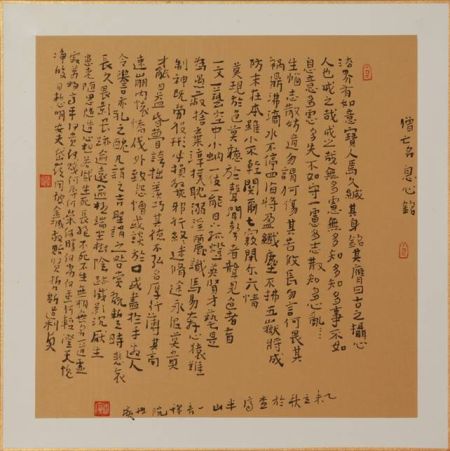 僧亡名息心銘
法界有如意寶人焉久緘其身銘其膺曰古之攝心
人也戒之哉戒之哉無多慮無多知多知多事不如
息意多慮多失不如守一慮多志散知多心亂
生惱志散妨道勿謂何傷其苦悠長勿言何畏其
禍鼎沸滴水不停四海將盈纖塵不拂五嶽將成
防末在本雖小不輕關爾七竅閉爾六情
莫視於色莫聽於聲聞聲者聾見色者盲
一文一藝空中小蚋一伎一能日下孤燈英賢才藝是
為愚蔽捨棄淳樸耽溺淫麗識馬易奔心猿難
制神既勞役形必損斃邪行終迷修途永泥莫貴
才能日益惛瞢誇拙羨巧其德不弘名厚行薄其高
速崩內懷憍伐外致怨憎或談於口或書於手邀人
令譽亦孔之醜凡謂之吉聖謂之咎賞翫暫時悲哀
長久畏影畏跡逾遠逾極端坐樹陰跡滅影沉厭生
患老隨思隨造心想若滅生死長絕不死不生無相無名一道虛
寂萬物齊平何貴何賤何辱何榮何勝何劣何重何輕澄天愧
淨皎日慚明安夫岱嶺同彼金城敬貽賢哲斯道利貞
立秋於半山一音禪院